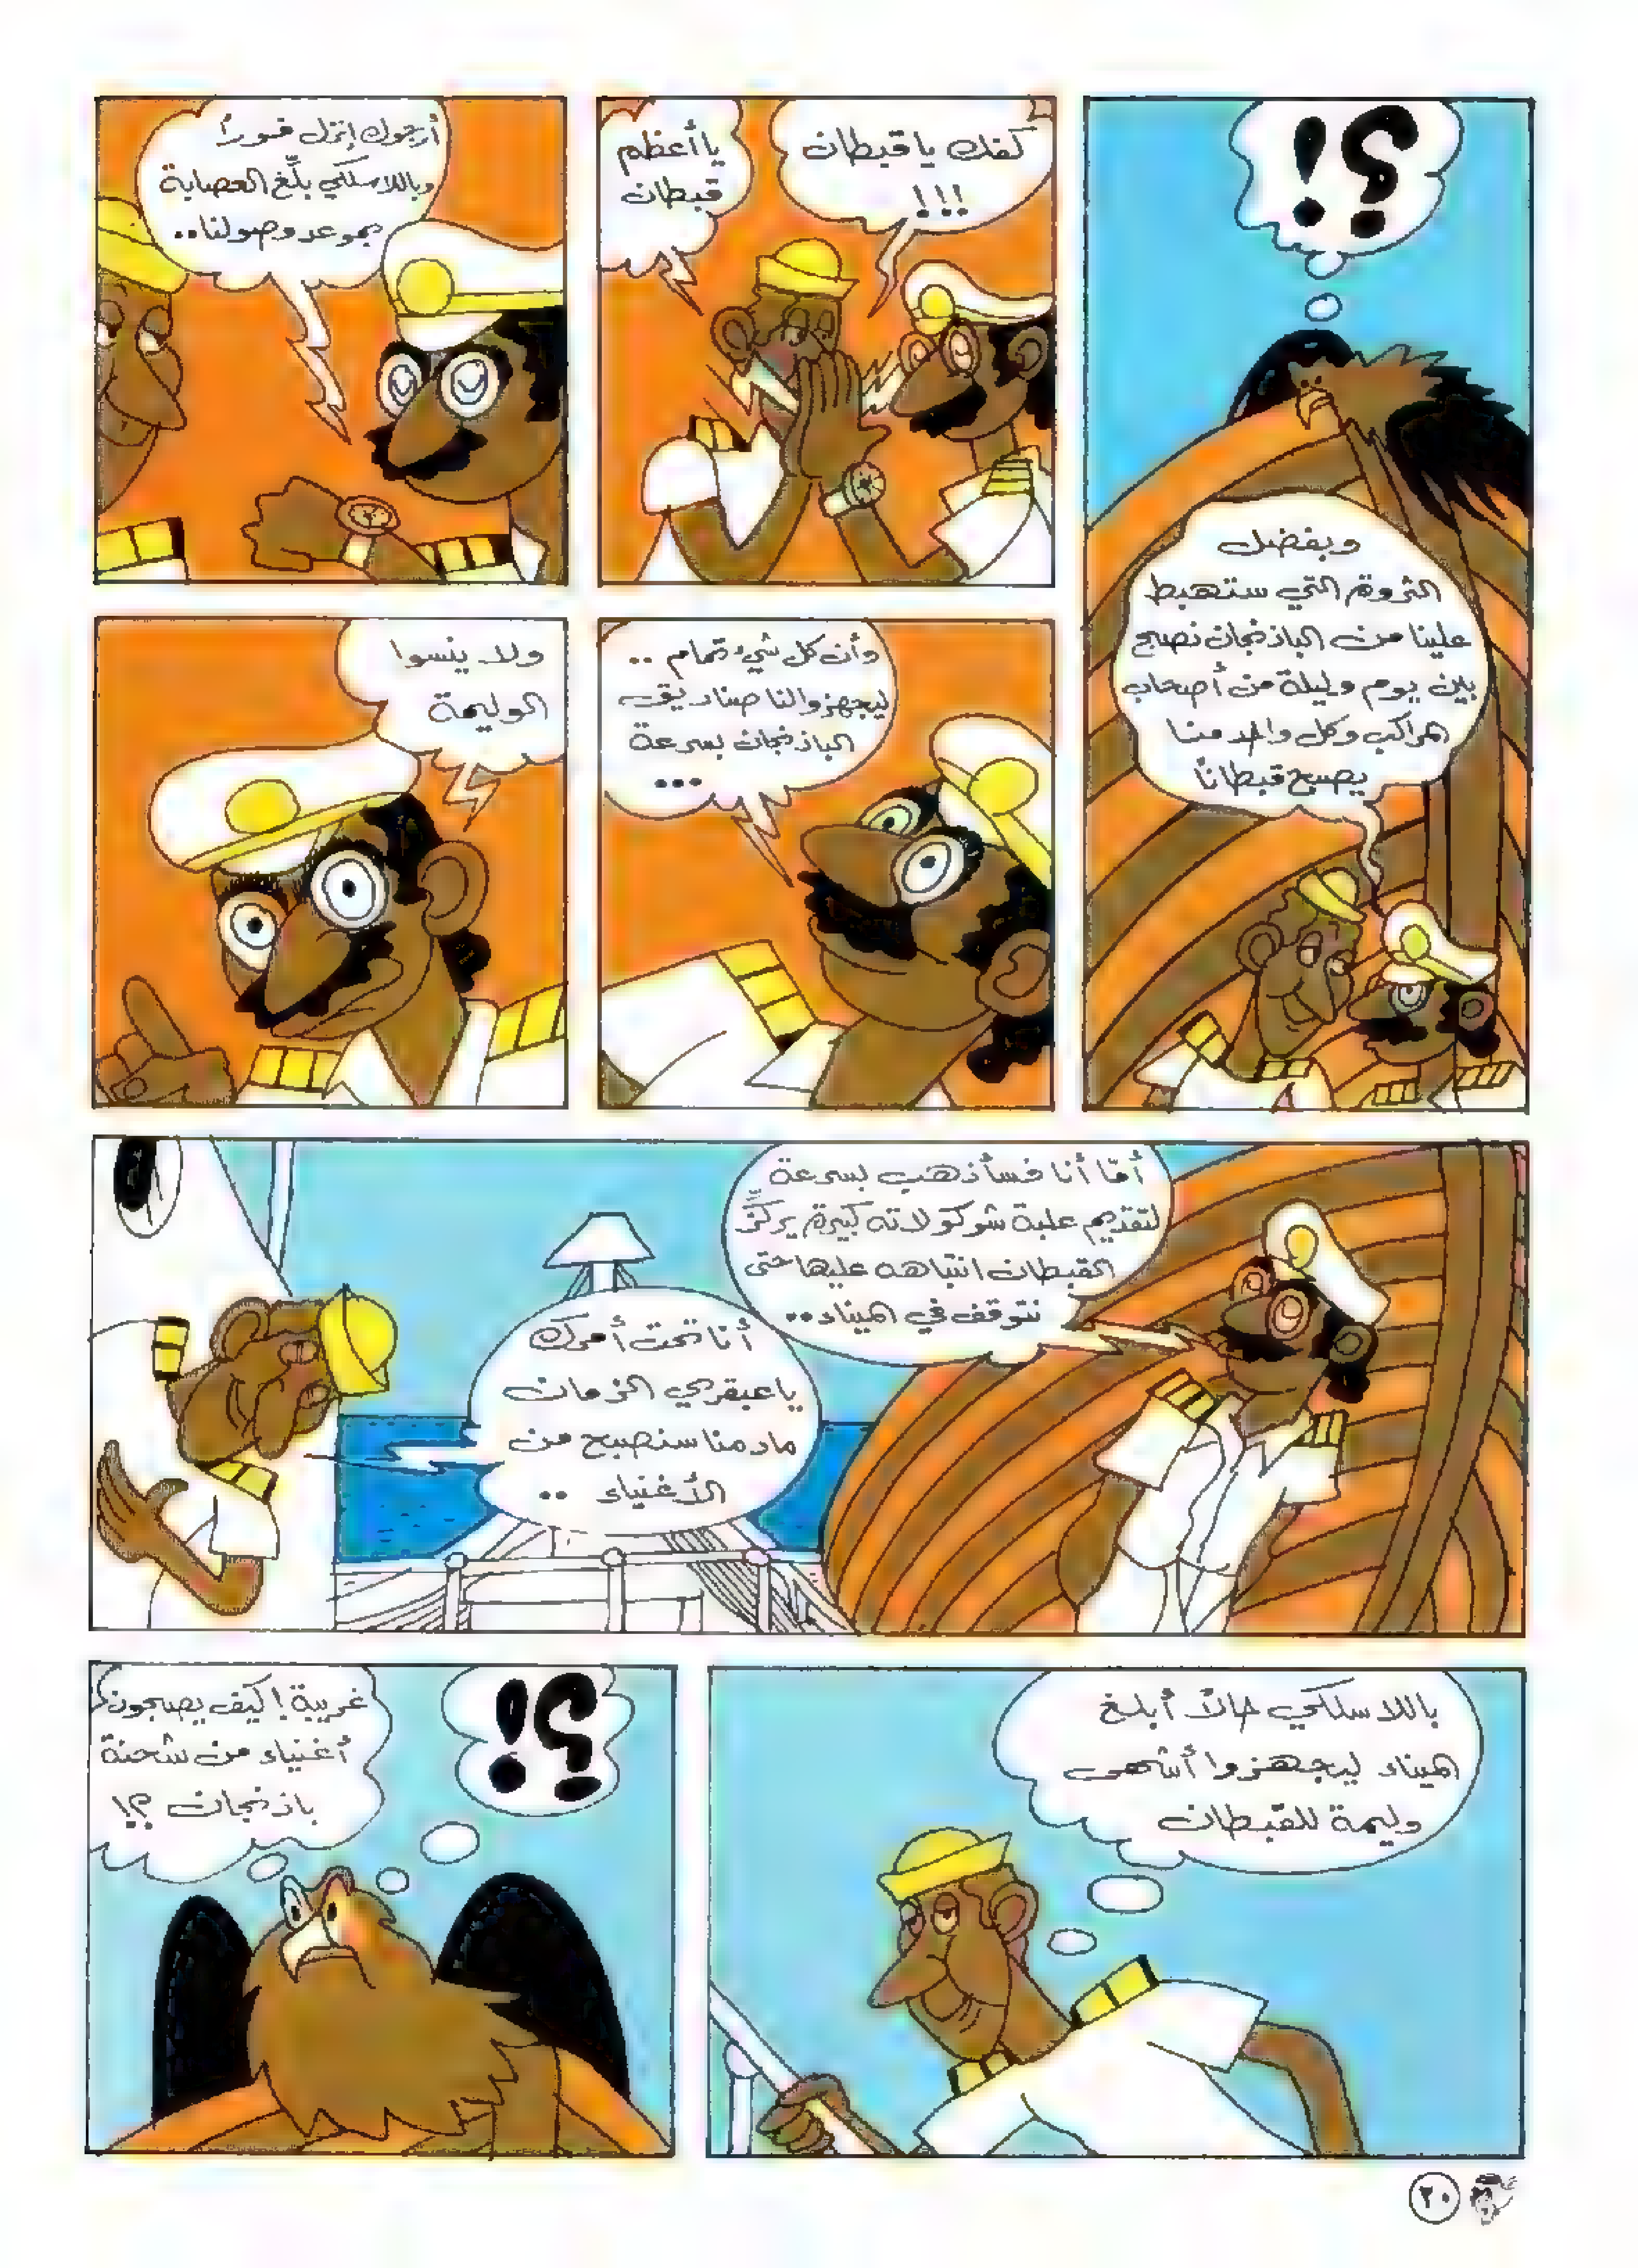 ؟!
وبفضل
الثروة التي ستهبط
علينا من الباذنجان نصبح
بين يوم وليلة من أصحاب
المراكب وكل واحد منا
يصبح قبطانًا
كفك يا قبطان
!!!
يا أعظم
قبطان
أرجوك إنزل فورًا
وباللاسلكي بلّغ العصابة
بموعد وصولنا..
وأن كل شيء تمام ..
ليجهزوا لنا صناديق
الباذنجان بسرعة
...
ولا ينسوا
الوليمة
أمّا أنا فسأذهب بسرعة
لتقديم علبة شوكولاته كبيرة يركّز
القبطان انتباهه عليها حتى
نتوقف في الميناء..
أنا تحت أمرك
يا عبقري الزمان
مادمنا سنصبح من
الأغنياء ..
باللاسلكي حالاً أبلغ
الميناء ليجهزوا أشهى
وليمة للقبطان
؟!
غريبة! كيف يصبحون
أغنياء من شحنة
باذنجان ؟!
٢٠